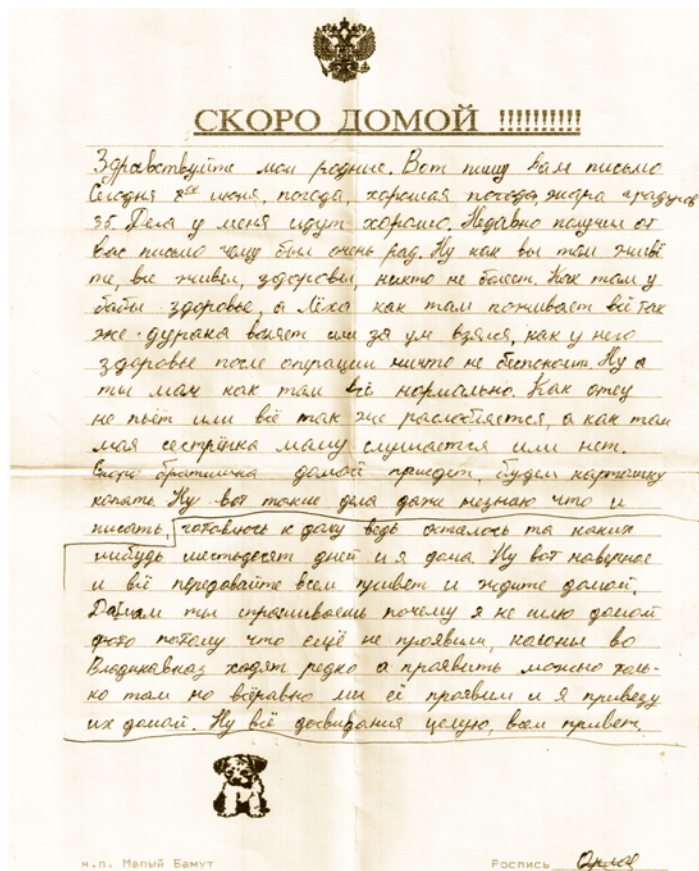 СКОРО ДОМОЙ !!!!!!!!!!
Здравствуйте мои родные. Вот пишу Вам письмо
Сегодня 8ое июня, погода, хорошая погода, жара градусов
35. Дела у меня идут хорошо. Недавно получил от
вас письмо чему был очень рад. Ну как вы там живё
те, все живы, здоровы, никто не болеет. Как там у
бабы здоровье, а Лёха как там поживает всё так
же дурака валяет или за ум взялся, как у него
здоровье после операции ничто не беспокоит. Ну а
ты мам как там всё нормально. Как отец
не пьёт или всё так же расслабляется, а как там
моя сестрёнка маму слушается или нет.
Скоро братишка домой приедет, будем картошку
копать. Ну вот такие дела даже незнаю что и
писать, готовлюсь к ведь осталось та каких
нибудь шестьдесят дней и я дома. Ну вот наверное
и всё передавайте всем привет и ждите домой.
Да мам ты спрашиваешь почему я не шлю домой
фото потому что ещё не проявили, колоны во
Владикавказ ходят редко а праявить можно толь-
ко там но всёравно мы её проявим и я привезу
их домой. Ну всё досвидания целую, всем привет.
н.п. Малый Бамут
Роспись